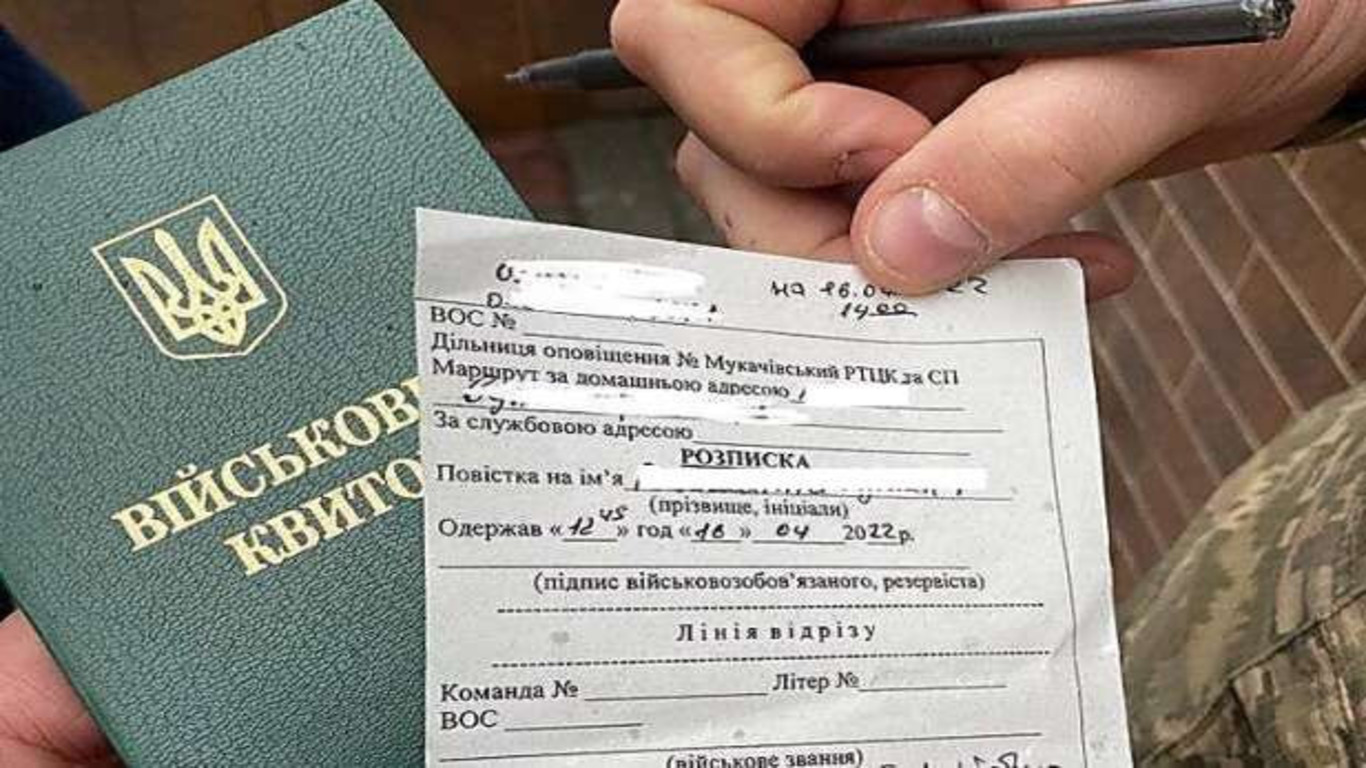 ВІЙСЬКОВ
КВИТО
на 16.04. 22
14 00
ВОС №
Дільниця оповіщення № Мукачівський РТЦК та СП
Маршрут за домашньою адресою
За службовою адресою
РОЗПИСКА
Повістка на ім’я
(прізвище, ініціали)
Одержав «12 45» год «16» 04 2022р.
(підпис військовозобов’язаного, резервіста)
Лінія відрізу
Команда № Літер №
ВОС
(військове звання)